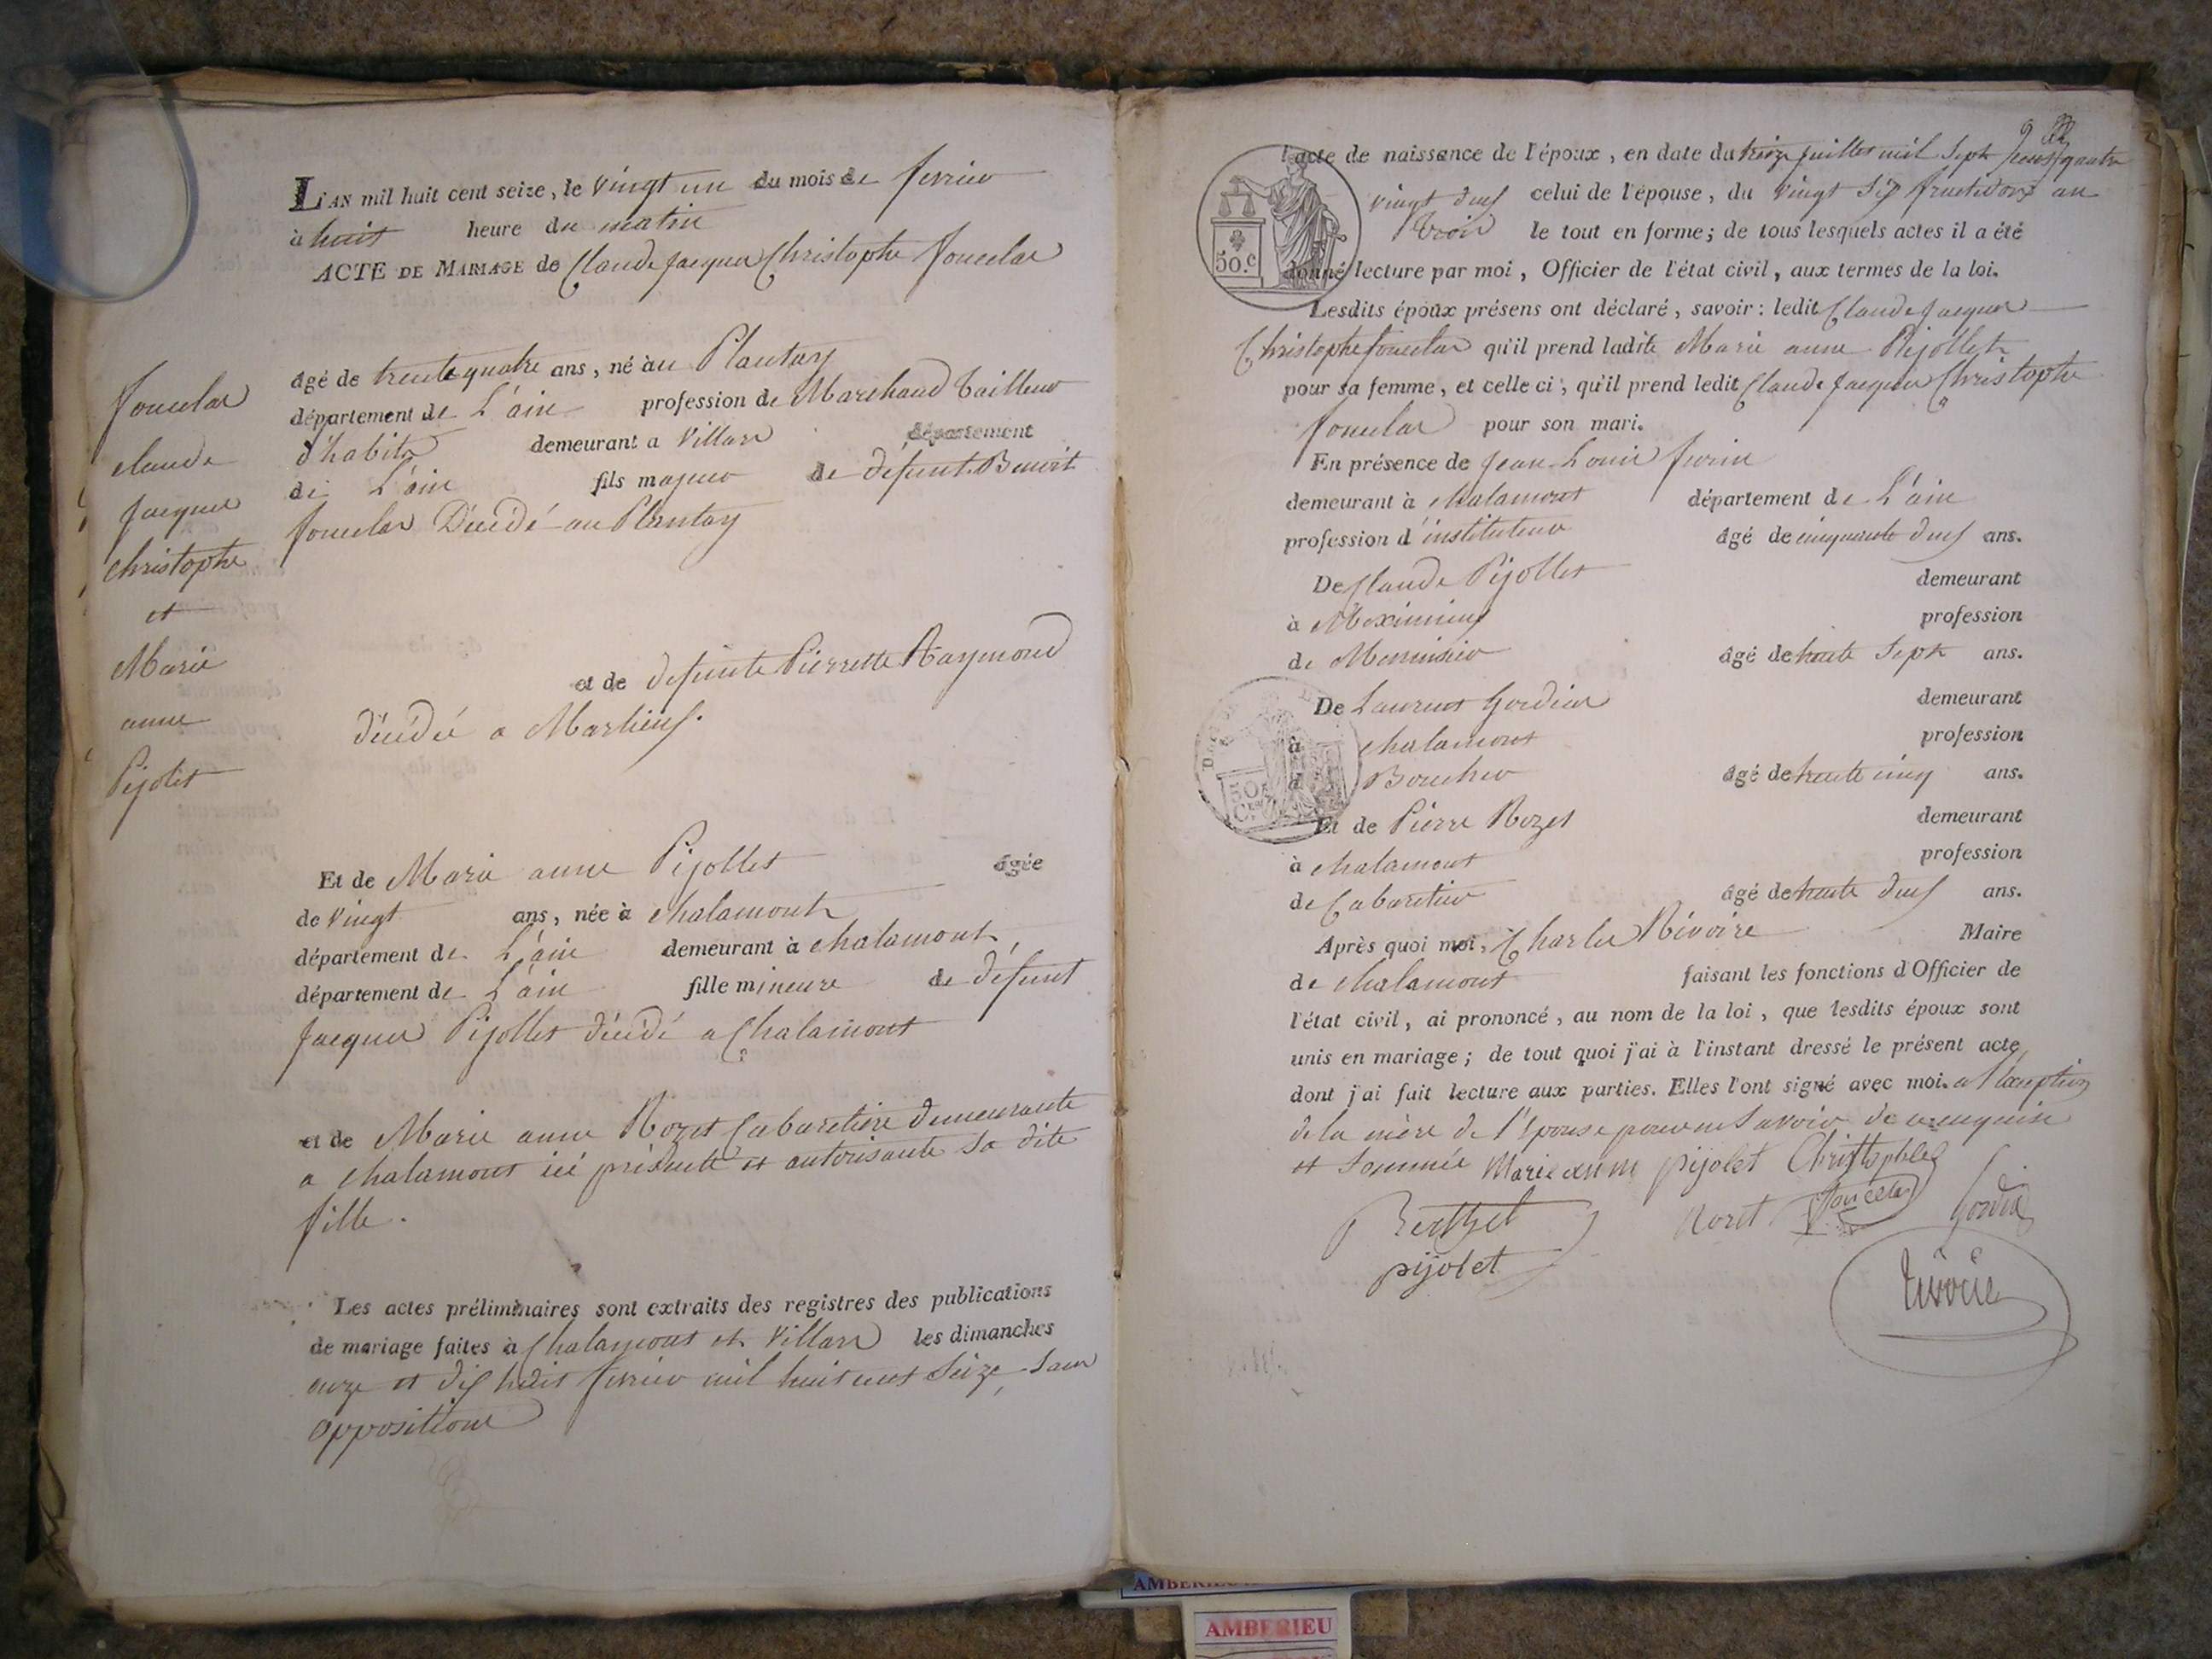 L'AN mil huit cent seize, le vingt un du mois de fevrier
à huit heure du matin
ACTE DE MARIAGE de Claude Jacques Christophe Joucelas
Joucelas
claude
Jacques
christophe
et
Marie
anne
Pijolet
âgé de trente quatre ans, né au Plantay
département de L'ain profession de Marchand tailleur
d'habits demeurant a Villars département
de L'ain fils majeur de défunt Benoit
Joucelas Décédé au Plantay
et de defunte Pierrette Raymond
décédée a Marlieux.
Et de Marie anne Pijollet âgée
de vingt ans, née à chalamont
département de L'ain demeurant à chalamont
département de L'ain fille mineure de défunt
Jacques Pijollet décédé a Chalamont
et de Marie anne Rozet Cabaretière demeurante
a chalamont ici présente et autorisante sa dite
fille.
Les actes préliminaires sont extraits des registres des publications
de mariage faites à Chalamont et Villars les dimanches
onze et dix huit fevrier mil huit cent seize, sans
oppositions
l'acte de naissance de l'époux, en date du treize juillet mil sept cent quatre
vingt deux celui de l'épouse, du vingt six fructidor an
trois le tout en forme; de tous lesquels actes il a été
50.c
donné lecture par moi, Officier de l'état civil, aux termes de la loi.
Lesdits époux présens ont déclaré, savoir: ledit Claude Jacques
Christophe Joucelas qu'il prend ladite Marie anne Pijollet
pour sa femme, et celle ci, qu'il prend ledit Claude Jacques Christophe
Joucelas pour son mari.
En présence de Jean Louis
demeurant à chalamont département de L'ain
profession d'instituteur âgé de cinquante deux ans.
De Claude Pijollet demeurant
à Meximieux profession
de Menuisier âgé de trente sept ans.
De Laurent Gordias demeurant
à chalamont profession
d Boucher âgé de trente cinq ans.
50
Et de Pierre Rozet demeurant
à chalamont profession
de Cabaretier âgé de trente deux ans.
Après quoi moi, Charles Rivoire Maire
de chalamont faisant les fonctions d'Officier de
l'état civil, ai prononcé, au nom de la loi, que lesdits époux sont
unis en mariage; de tout quoi j'ai à l'instant dressé le présent acte
dont j'ai fait lecture aux parties. Elles l'ont signé avec moi. a l'exception
de la mère de l'épouse pour ne savoir de ce enquise
et sommée Marie anne pijolet Christophle
Joucelas
Rozet
pijolet
Rivoire
AMBERIEU
AMBERIEU